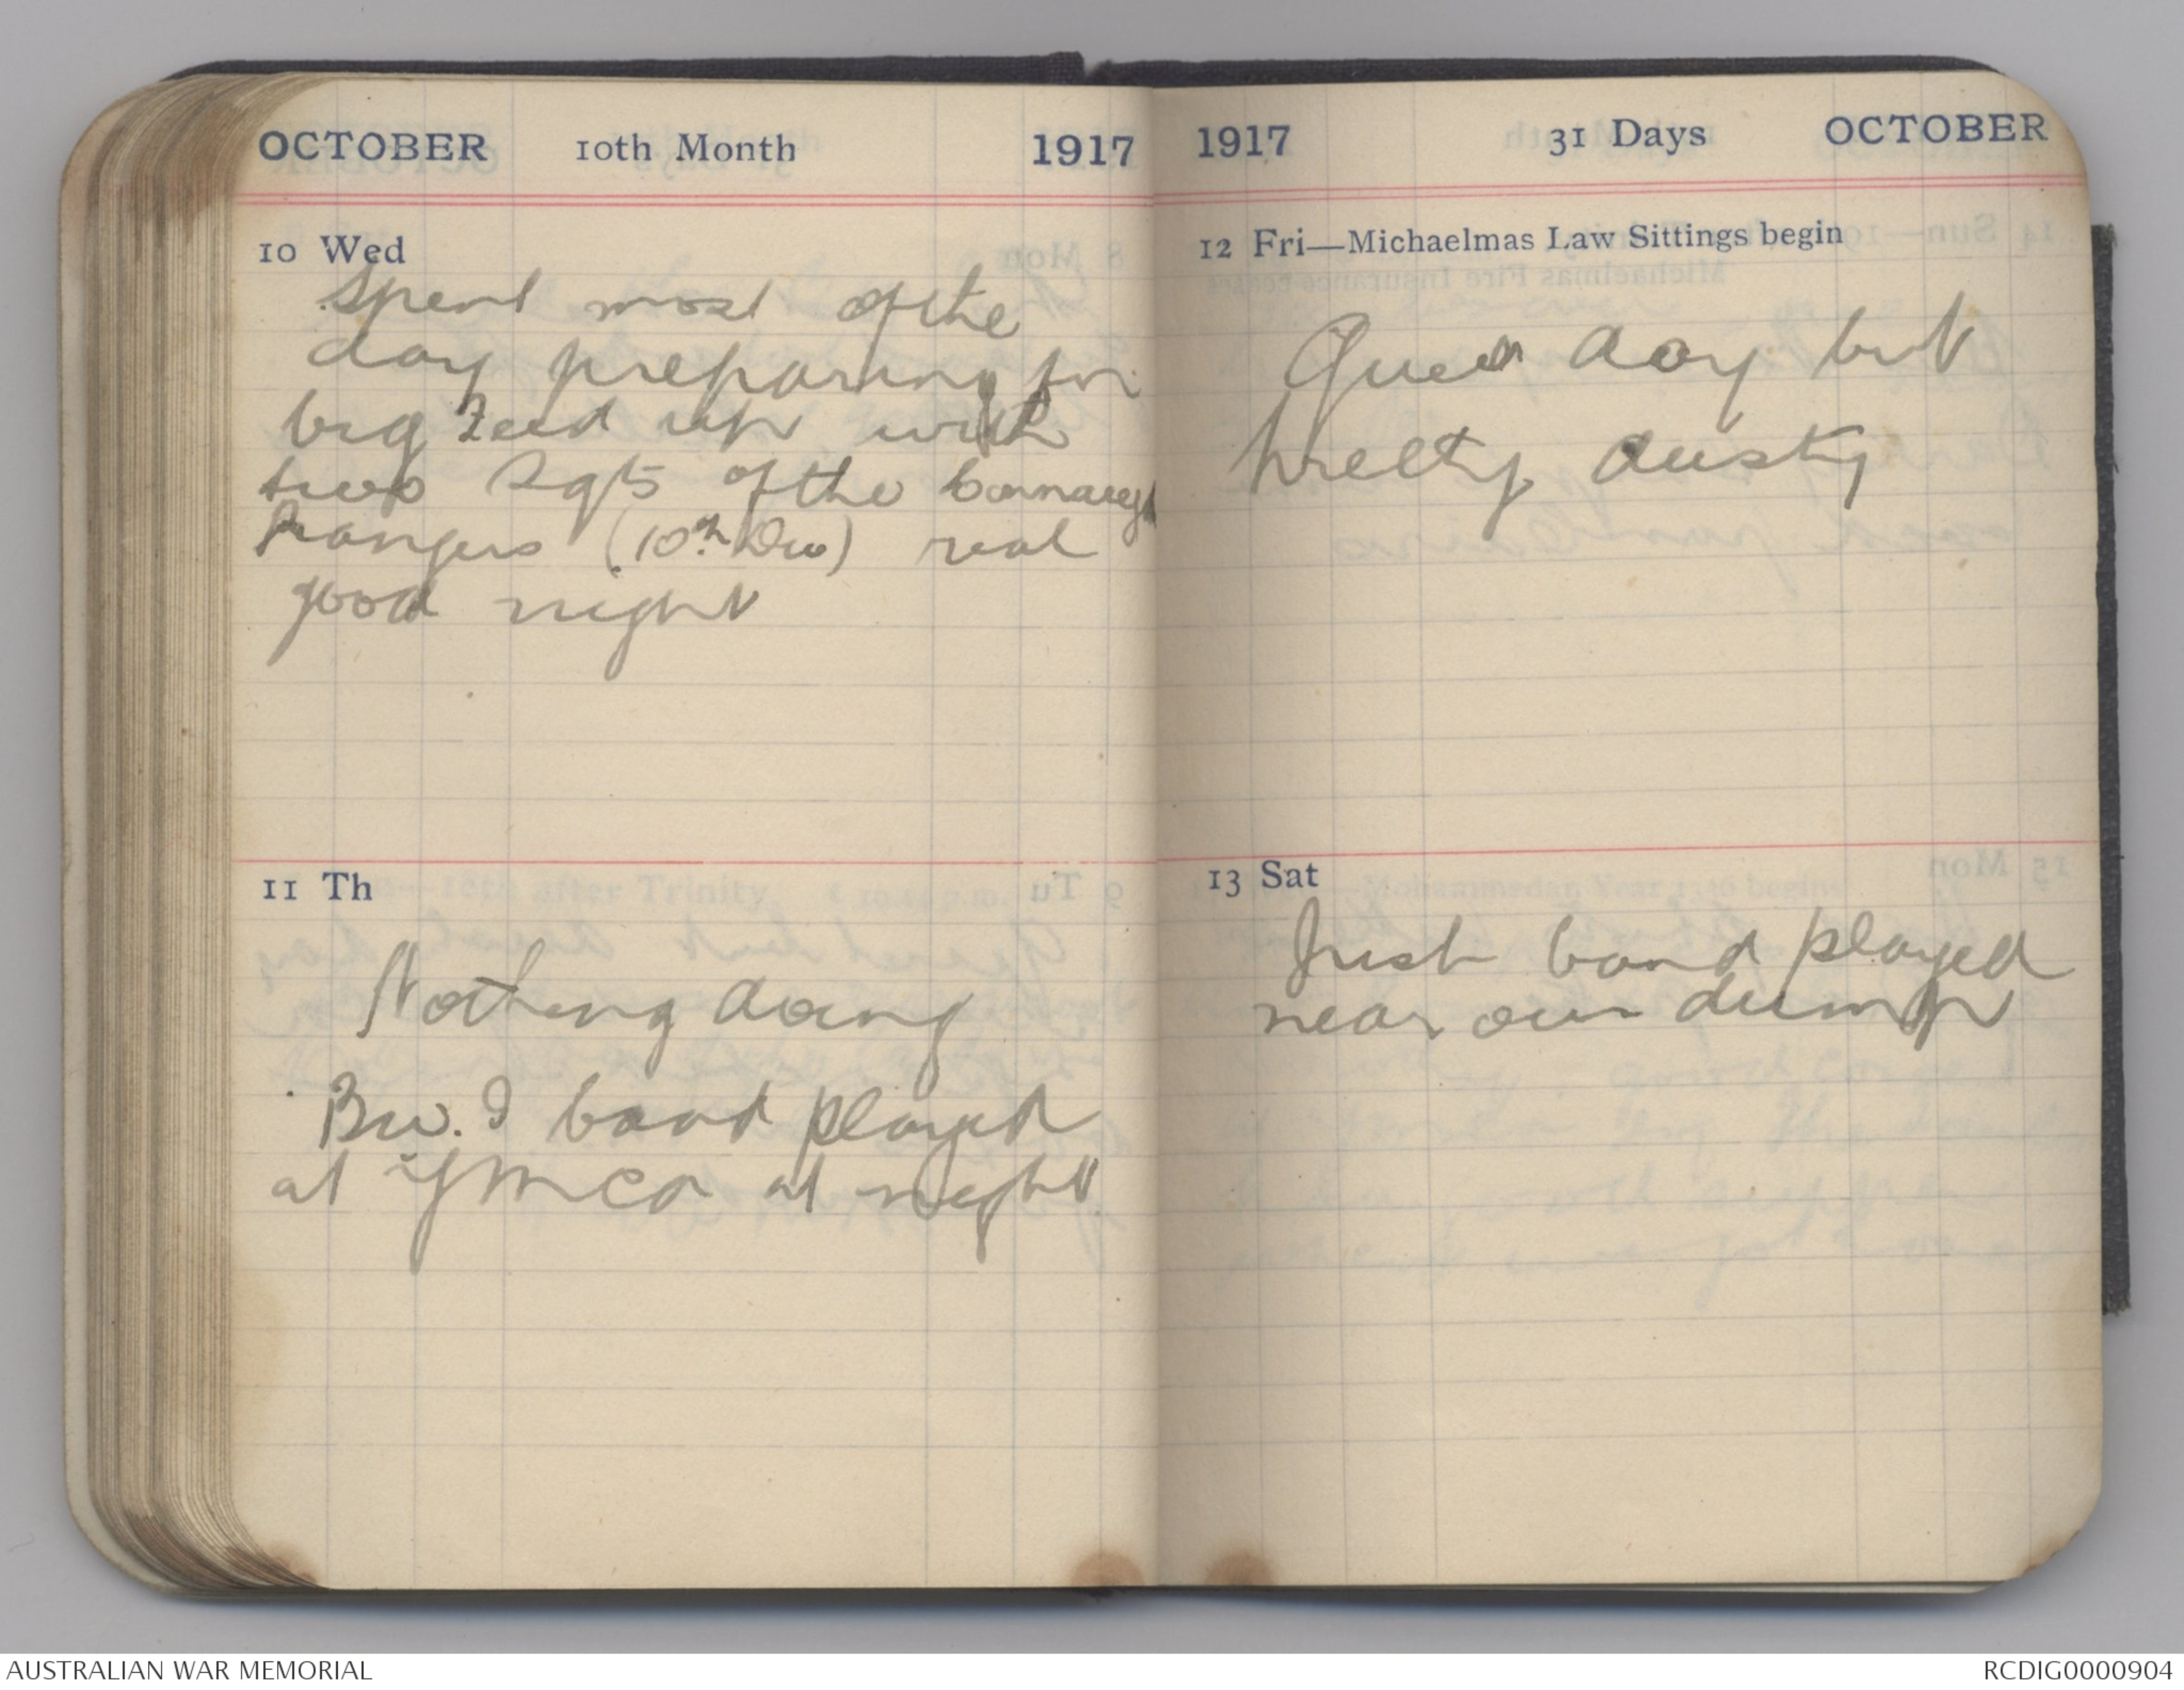 OCTOBER 10th Month 1917
10 Wed
Spent most of the
day preparing for
big feed up with
two Sgts of the Connaught
Rangers (10th Div) real
good night
11 Th
Nothing doing
B.W.I band played
at YMCA at night
1917 31 Days OCTOBER
12 Fri—Michaelmas Law Sittings begin
Quiet day but
pretty dusty
13 Sat
band played
near our dump
AUSTRALIAN WAR MEMORIAL
RCDIG0000904